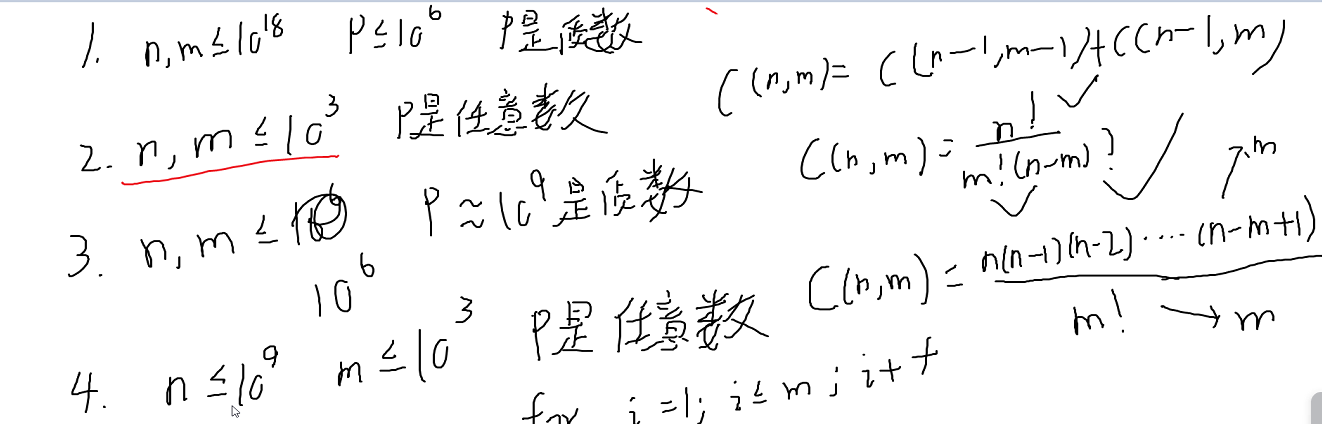 1. n,m≤10^18 P≤10^6 P是质数
2. n,m≤10^3 P是任意数
3. n,m≤ P≈10^9是质数
10^6
4. n≤10^9 m≤10^3 P是任意数
for i=1; i≤m; i++
C(n,m)= C(n-1,m-1)+C(n-1,m)
C(n,m)= n! / m!(n-m)!
C(n,m)= n(n-1)(n-2)....(n-m+1) / m! → m
↗m